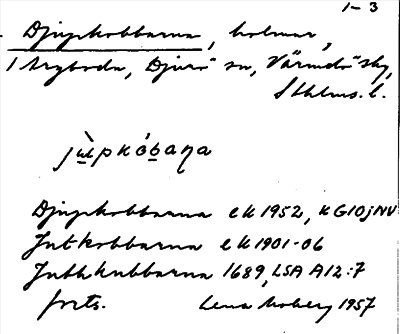 1-3
Djupkobbarna, holmar,
i Aryboda, Djurö sn, Värmdö sky,
Sthlms. l.
Djupkobbarna ek 1952, KG10jNV
Jutkobbarna ek 1901-06
Juthkubbarna 1689, LSA A12:7
forts. Lena Moberg 1957